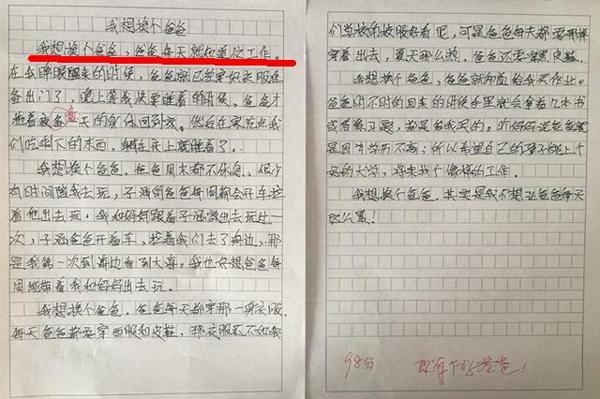 我想换个爸爸
我想换个爸爸，爸爸每天就知道忙工作。
在我睁眼醒来的时候，爸爸就已经穿好衣服准
备出门了，晚上等我快要睡着的时候，爸爸才
拖着疲惫一天的身体回到家。然后在家吃点我
们吃剩下的东西，躺在床上就睡着了。
我想换个爸爸，爸爸周末都不休息。很少
有时间陪我去玩，子涵的爸爸每周都会开车拉
着他出去玩，我和妈妈跟着子涵家出去玩过一
次，子涵爸爸开着车，拉着我们去了海边，那
是我第一次到海边看到大海，我也好想爸爸每
周能带着我和妈妈出去玩。
我想换个爸爸。爸爸每天都穿那一身衣服，
每天爸爸都要穿西服和皮鞋，那衣服还不如我
们学校的校服好看呢，可是爸爸每天都要那样
穿着出去，夏天那么热，爸爸还要穿黑皮鞋。
我想换个爸爸，爸爸就知道给我买作业。
爸爸时不时的回来的时候手里就会拿着几本书
或者练习题，都是给我买的。听妈妈说爸爸就
是因为学历不高，所以希望自己的孩子能上个
好的大学，将来找个像样的工作。
我想换个爸爸，其实是我不想让爸爸每天
这么累！
98分
你有个好爸爸！